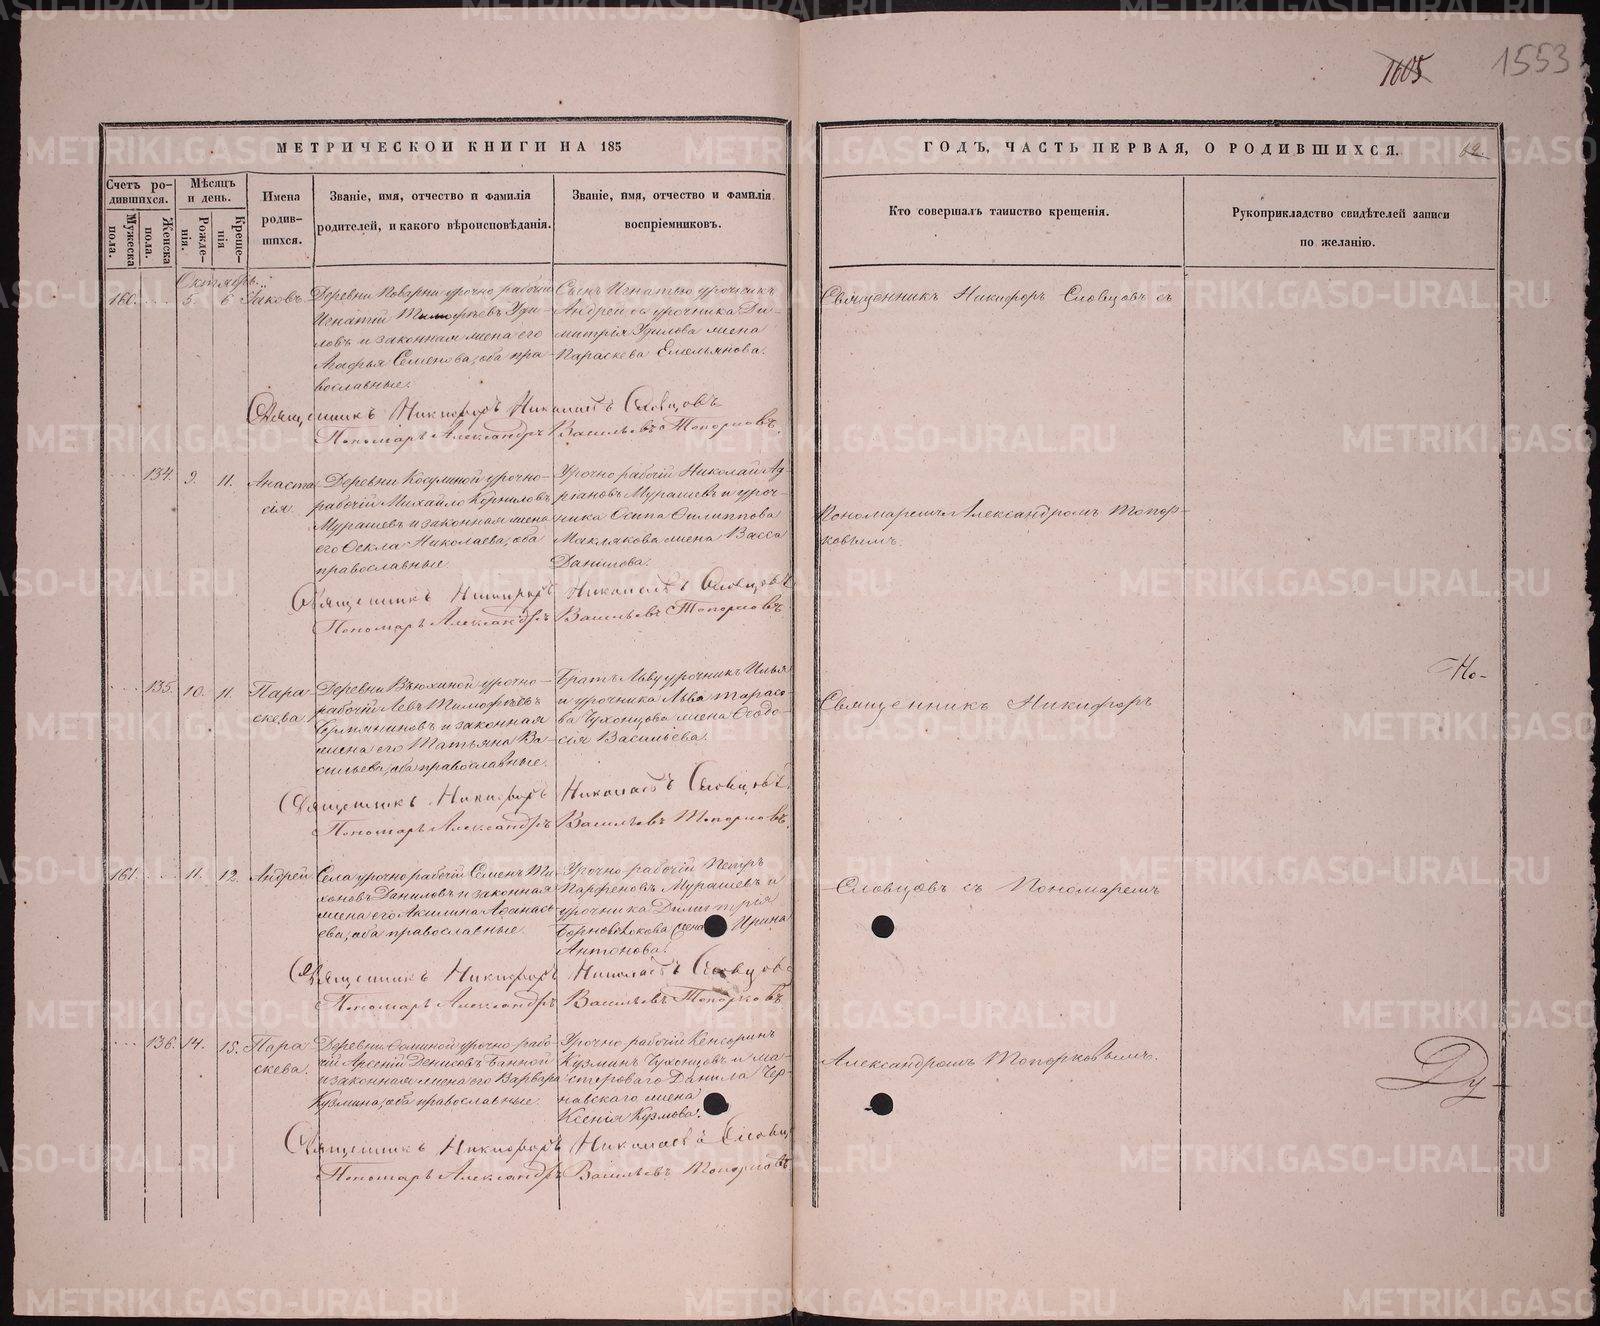 1605
1553
МЕТРИЧЕСКОИ КНИГИ НА 185
ГОДЪ, ЧАСТЬ ПЕРВАЯ, О РОДИВШИХСЯ.
62
Счетъ ро-
дившихся.
Мужеска
пола.
Женска
пола.
Мѣсяцъ
и день.
Рожде-
нія.
Креще-
нія
Имена
родив-
шихся.
Званіе, имя, отчество и фамилія
родителей, и какого вѣроисповѣданія.
Званіе, имя, отчество и фамилія
воспріемниковъ.
Кто совершалъ таинство крещенія.
Рукоприкладство свидѣтелей записи
по желанію.
Октябрь
160. 5. 6. Іаковъ.
Деревни Поварни урочно рабочій
Игнатій Тимофѣевъ Узи-
ловъ и законная жена его
Марья Семенова, оба пра-
вославные.
Сынъ Игнатію урочникъ
Андрей да урочника Ди-
митрія Узилова жена
Параскева Емельянова.
Священникъ Никифоръ Словцовъ съ
Священникъ Никифоръ Николаевъ Словцовъ
Пономарь Александръ Васильевъ Топорковъ.
134. 9. 11. Анаста
сія
Деревни Косулиной урочно-
рабочій Михайло Корниловъ
Мурашевъ и законная жена
его Ѳекла Николаева, оба
православные.
Урочно рабочій Николай Ад-
ріановъ Мурашевъ и уроч-
ника Осипа Филиппова
Маклакова жена Васса
Данилова.
Пономаремъ Александромъ Топор-
ковымъ.
Священникъ Никифоръ Николаевъ Словцовъ
Пономарь Александръ Васильевъ Топорковъ
135. 10. 11. Пара
скева
Деревни Вьюхиной урочно-
рабочій Левъ Тимофѣевъ
и законная
жена его Татьяна Ва-
сильева, оба православные.
Братъ Льву урочникъ Илья
и урочника Льва Тарасо-
ва Чухонцова жена Ѳеодо-
сія Васильева.
Священникъ Никифоръ
Но-
Священникъ Никифоръ Николаевъ Словцовъ
Пономарь Александръ Васильевъ Топорковъ.
161. 11. 12. Андрей.
Села урочно рабочій Семенъ Ти-
хоновъ Даниловъ и законная
жена его Акилина Аѳанась-
ева, оба православные.
Урочно рабочій Петръ
Парфеновъ Мурашевъ и
урочника Димитрія
жена Ирина
Антонова.
Словцовъ съ Пономаремъ
Священникъ Никифоръ Николаевъ Словцовъ
Пономарь Александръ Васильевъ Топорковъ
136. 14. 15. Пара
скева.
Деревни урочно рабо-
чій Арсеній Денисовъ Банной
и законная жена его Варвара
Кузмина, оба православные.
Урочно рабочій Кенсоринъ
Кузминъ Чухонцовъ и ма-
стероваго Данила Чер-
навскаго жена
Ксенія Кузмова.
Александромъ Топорковымъ.
Ду-
Священникъ Никифоръ Николаевъ Словцовъ
Пономарь Александръ Васильевъ Топорковъ
METRIKI.GASO-URAL.RU